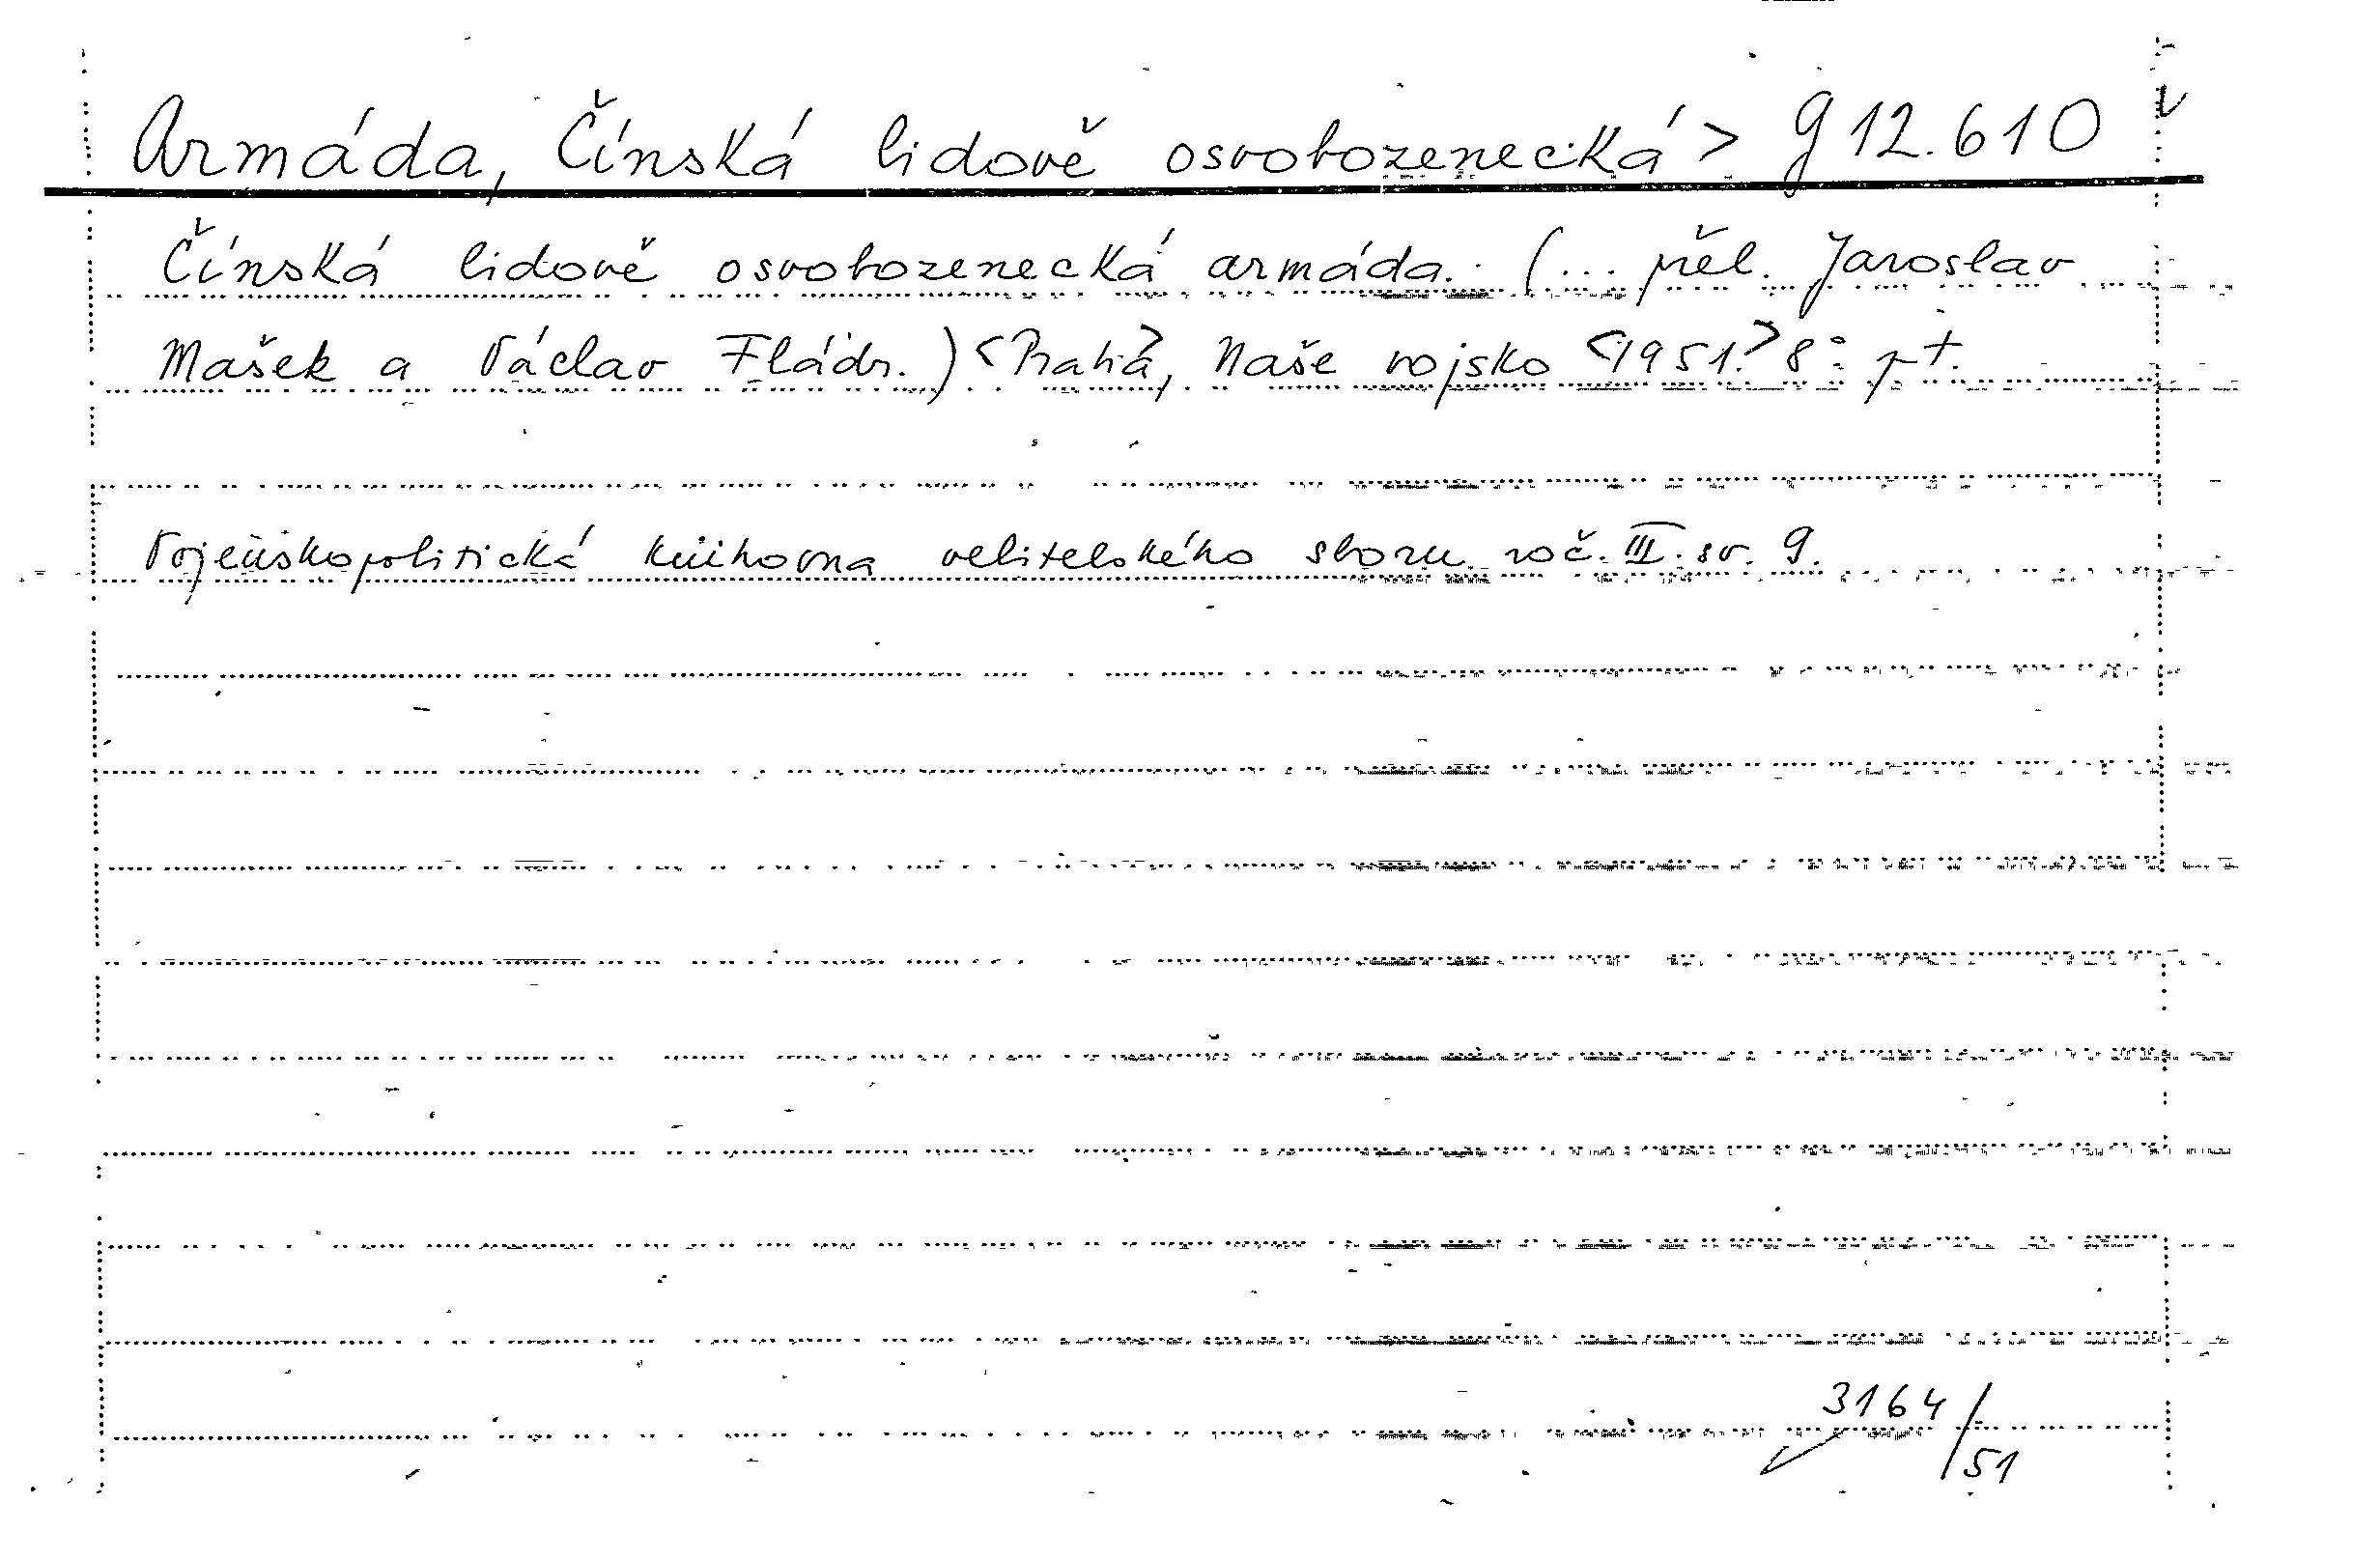 Armáda, Čínská lidově osvobozenecká > g 12.610
Čínská lidově osvobozenecká armáda. (... přel. Jaroslav
Mašek a Václav Fládr.) <Praha>, Naše vojsko <1951.> 8° pt.
Vojenskopolitická knihovna velitelského sboru roč. III. sv. 9.
3164/51